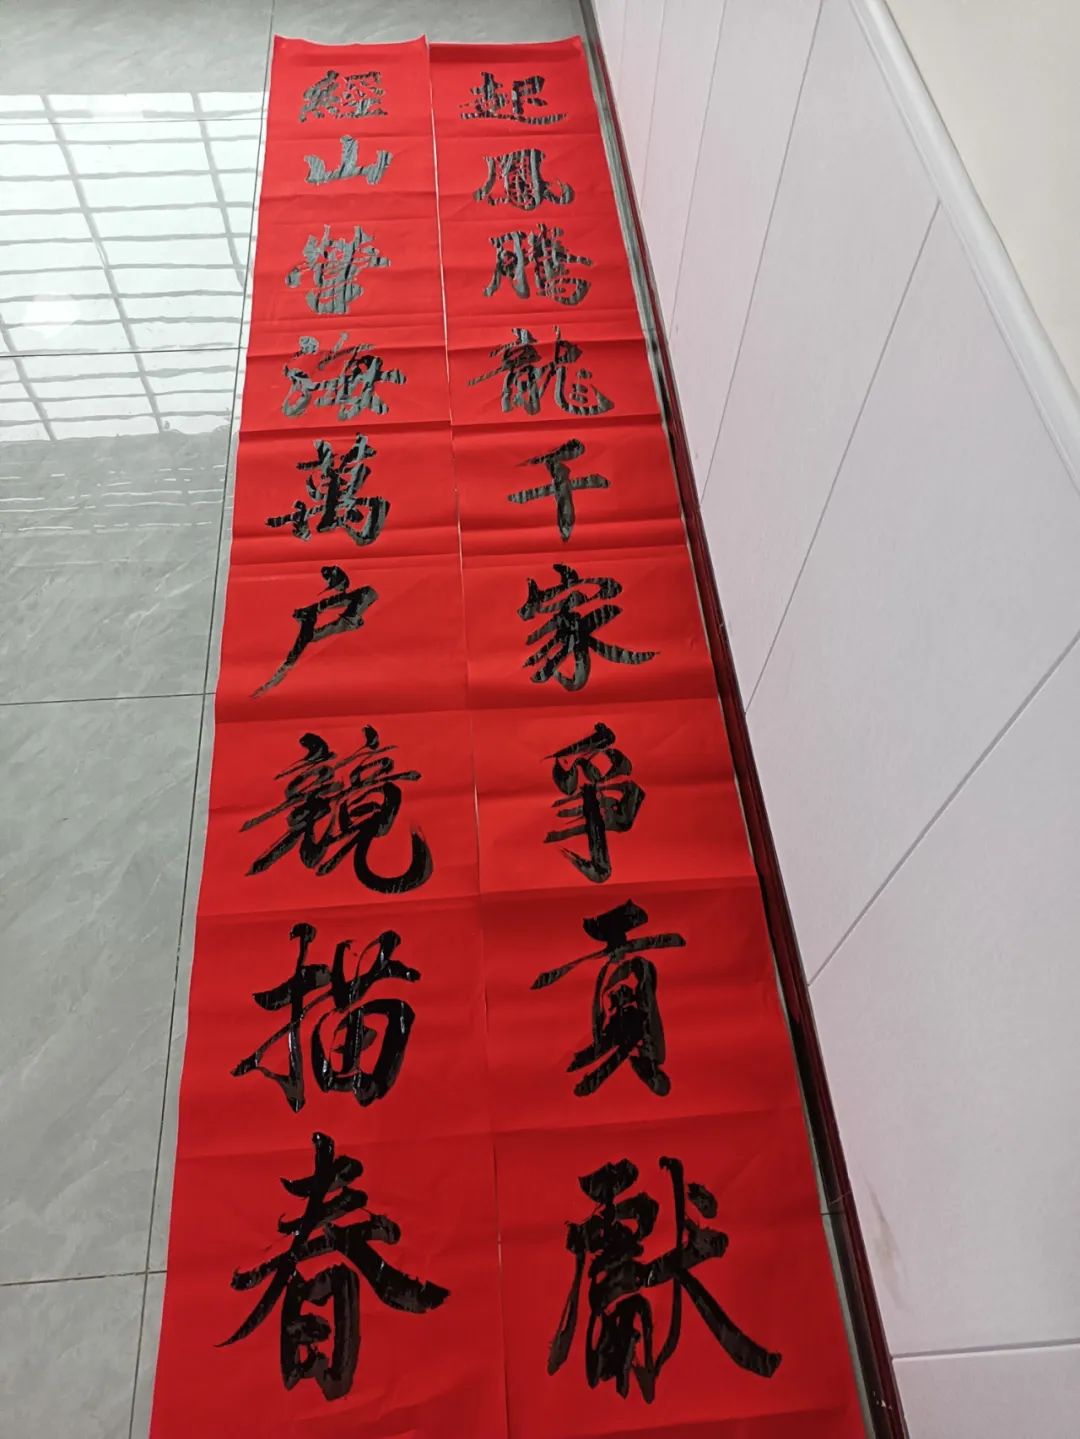 起鳳騰龍千家爭貢獻
經山營海萬户競描春